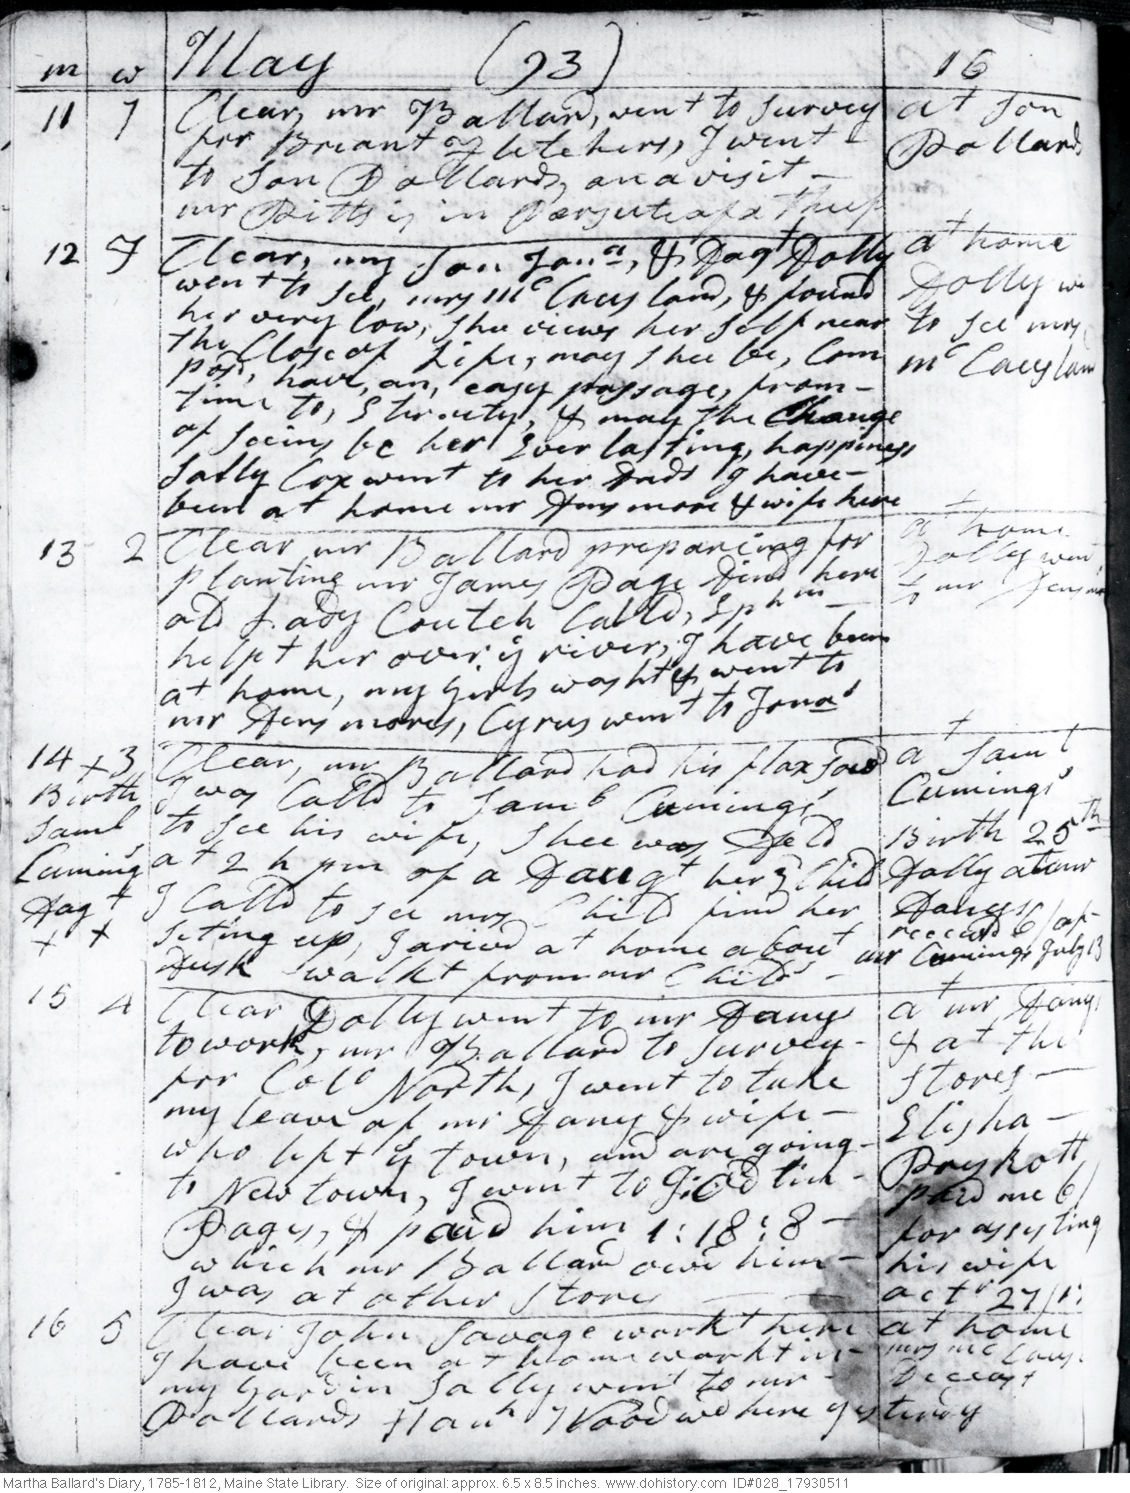 m w May (93) 16
11 7 Clear, mr Ballard, went to survey
for Briant Fletchers, I went
to Son Pollards, on a visit -
mr Pitts is in Persute of a Theef
at Son
Pollards
12 F Clear, my Son Jona, & Dagt Dolly
went to see, mrs mc Causland, & found
her very low, shee views her self near
the Close of Life, may shee be, Com
posd, have, an, easy passage, from -
time to, Eternity, & may the Change
of Seeins be her Everlasting, happiness
Sally Cox went to her Dads I have -
been at home mr Densmore & wife here
at home
Dolly we
to see mrs
mc Causlan
13 2 Clear mr Ballard prepareing for
planting mr James Page dind here
old Lady Coutch Calld, Ephm -
helpt her over ye river, I have been
at home, my Girls washt & went to
mr Densmores, Cyrus went to Jonas
at home
Dolly went
to mr Densmo
14 x 3 Clear, mr Ballard had his flax soed
I was Calld to Saml Cumings
to see his wife, Shee was Deld
at 2 h pm of a Daugt her 3 Child
I Calld to see mrs Child find her
seting up, I arivd at home about
Dusk walkt from mr Childs -
Birth
Saml
Cumings
Dagt
x x
at Saml
Cumings
Birth 25th
Dolly at mr
Danys
receivd 6/ of
mr Cumings July 13
15 4 Clear Dolly went to mr Danys
to work, mr Ballard to survey -
for Colo North, I went to take
my leave of mr Dany & wife -
who left ye town, and are going -
to New town, I went to
Pages, & paid him 1:18:8 -
which mr Ballard owd him -
I was at other Stores
at mr Danys
& at the
stores -
Elisha -
Prykott
paid me 6/
for assisting
his wife
octr 27/
16 5 Clear John Savage workt here
I have been at home workt in -
my Gardin Sally went to mr -
Pollards Hanh Woodwd here yesterdy
at home
mrs mc Caus
Deceast
Martha Ballard's Diary, 1785-1812, Maine State Library. Size of original: approx. 6.5 x 8.5 inches. www.dohistory.com ID#028_17930511